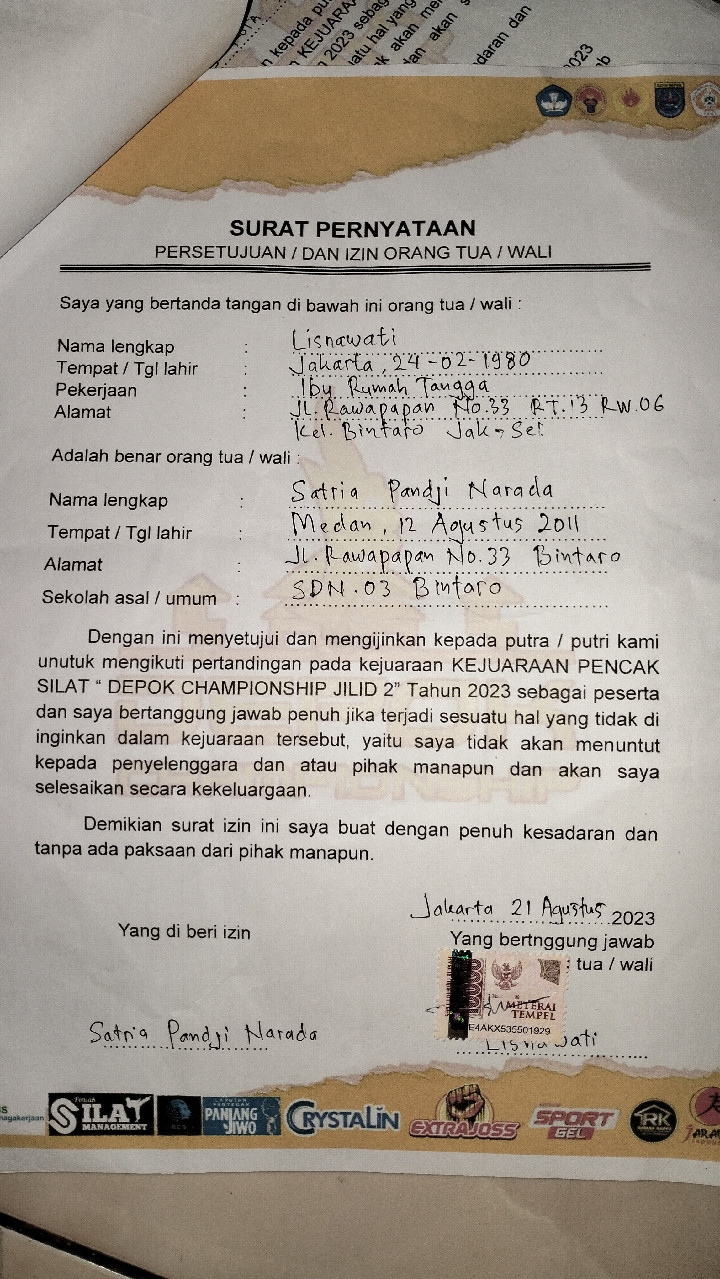 SURAT PERNYATAAN
PERSETUJUAN / DAN IZIN ORANG TUA / WALI
Saya yang bertanda tangan di bawah ini orang tua / wali :
Nama lengkap : Lisnawati
Tempat / Tgl lahir : Jakarta, 24-02-1980
Pekerjaan : Ibu Rumah Tangga
Alamat : Jl. Rawapapan No.33 RT.13 RW.06
Kel. Bintaro Jak-Sel
Adalah benar orang tua / wali :
Nama lengkap : Satria Pandji Narada
Tempat / Tgl lahir : Medan, 12 Agustus 2011
Alamat : Jl. Rawapapan No.33 Bintaro
Sekolah asal / umum : SDN.03 Bintaro
Dengan ini menyetujui dan mengijinkan kepada putra / putri kami
unutuk mengikuti pertandingan pada kejuaraan KEJUARAAN PENCAK
SILAT “ DEPOK CHAMPIONSHIP JILID 2” Tahun 2023 sebagai peserta
dan saya bertanggung jawab penuh jika terjadi sesuatu hal yang tidak di
inginkan dalam kejuaraan tersebut, yaitu saya tidak akan menuntut
kepada penyelenggara dan atau pihak manapun dan akan saya
selesaikan secara kekeluargaan.
Demikian surat izin ini saya buat dengan penuh kesadaran dan
tanpa ada paksaan dari pihak manapun.
Jakarta 21 Agustus 2023
Yang di beri izin
Yang bertnggung jawab
: tua / wali
METERAI
TEMPEL
E4AKX535501929
Satria Pandji Narada
Lisnawati
SILAT
MANAGEMENT
PANJANG
JIWO
CRYSTALIN
EXTRAJOSS
SPORT
GEL
RK